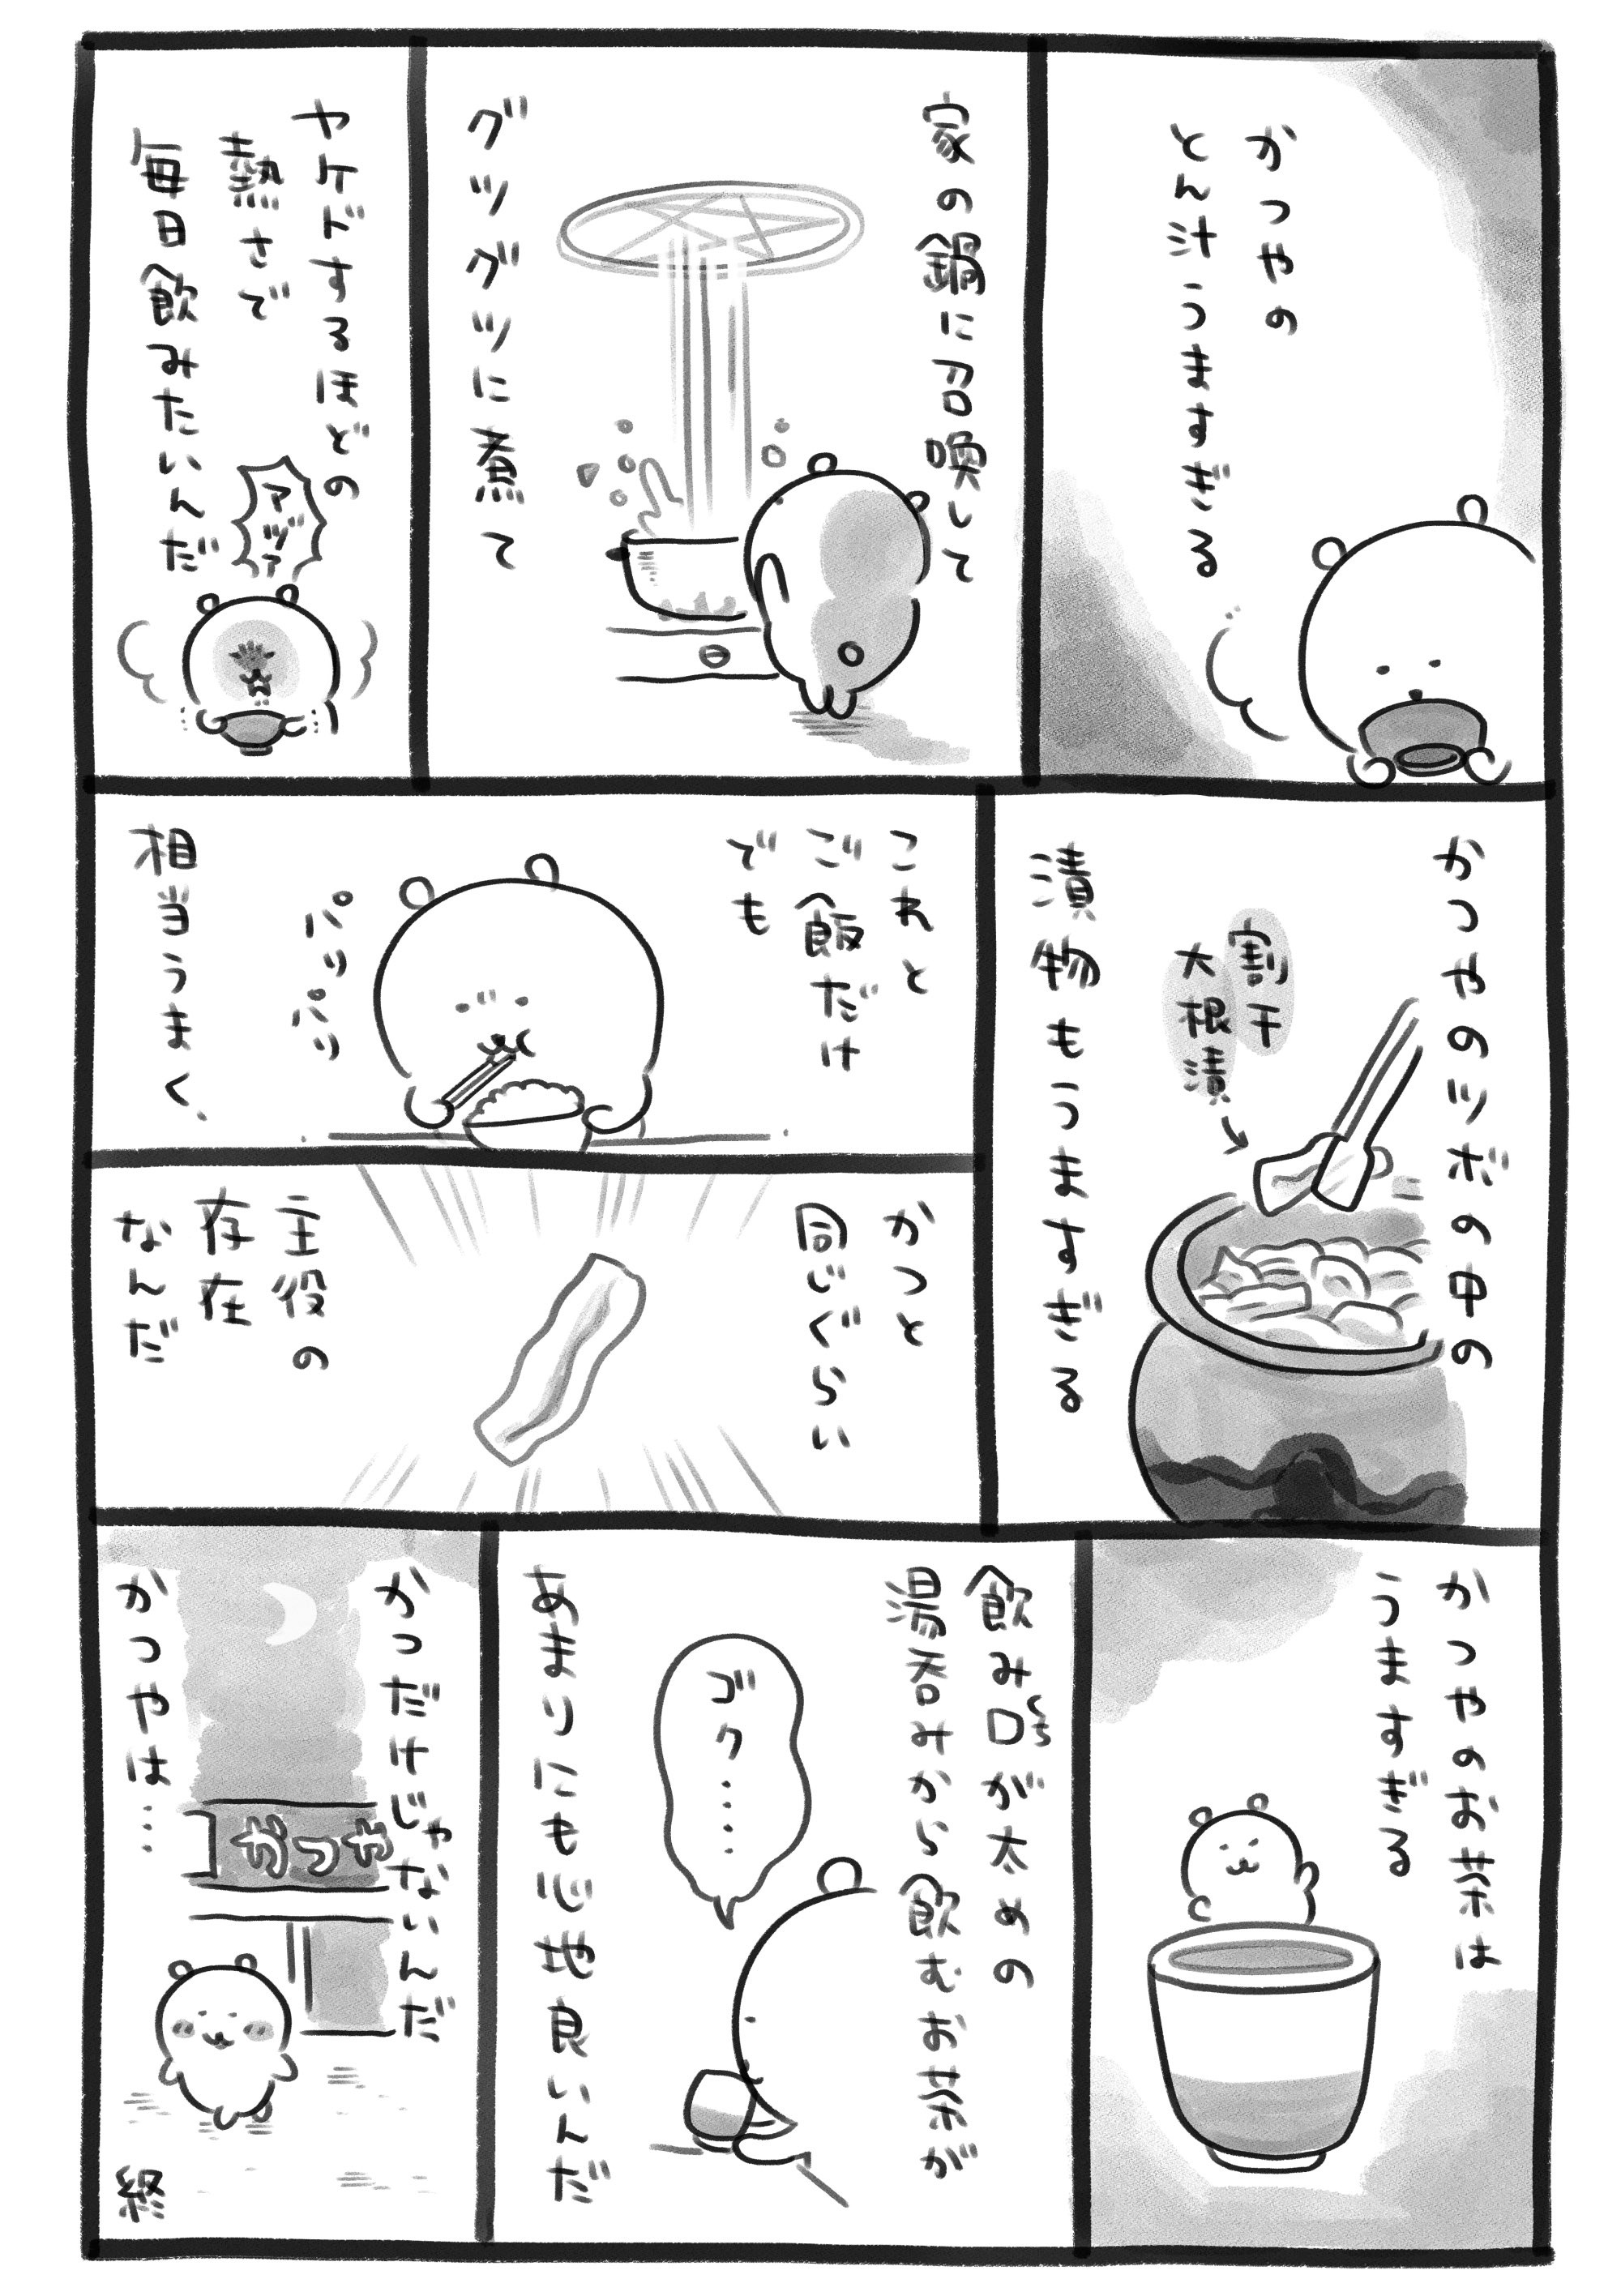 かつやの
とん汁うますぎる
家の鍋に召喚して
グツグツに煮て
ヤケドするほどの
熱さで
毎日飲みたいんだ
アヅァ
かつやのツボの中の
漬物もうますぎる
割干
大根漬
これと
ご飯だけ
でも
パリパリ
相当うまく、
かつと
同じぐらい
主役の
存在
なんだ
かつやのお茶は
うますぎる
飲み口が太めの
くち
湯呑みから飲むお茶が
ゴク……
あまりにも心地良いんだ
かつだけじゃないんだ
かつやは…
かつや
終